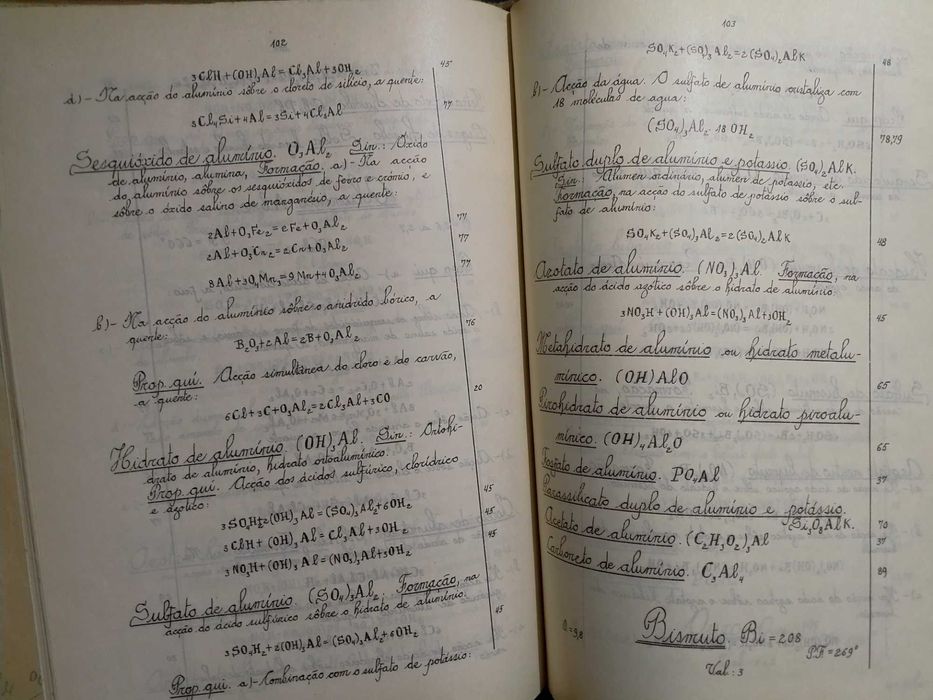 102
3ClH+(OH)₃Al=Cl₃Al+3OH₂ 45
d)-Na acção do alumínio sôbre o cloreto de silício, a quente:
3Cl₄Si+4Al=3Si+4Cl₃Al 77
Sesquióxido de alumínio. O₃Al₂ Sin.: Óxido
de alumínio, alumina, Formação. a)-Na acção
do alumínio sôbre os sesquióxidos de ferro e crómio, e
sôbre o óxido salino de manganésio, a quente:
2Al+O₃Fe₂=2Fe+O₃Al₂ 77
2Al+O₃Cr₂=2Cr+O₃Al₂ 77
8Al+3O₄Mn₃=9Mn+4O₃Al₂ 77
b)-Na acção do alumínio sôbre o anidrido bórico, a
quente:
B₂O₃+2Al=2B+O₃Al₂ 76
Prop. qui. Acção simultânea do cloro e do carvão,
a quente:
6Cl+3C+O₃Al₂=2Cl₃Al+3CO 20
Hidrato de alumínio. (OH)₃Al. Sin.: Ortohi-
drato de alumínio, hidrato ortoalumínico.
Prop. qui. Acção dos ácidos sulfúrico, clorídrico
e azótico:
3SO₄H₂+2(OH)₃Al=(SO₄)₃Al₂+6OH₂ 45
3ClH+(OH)₃Al=Cl₃Al+3OH₂ 45
3NO₃H+(OH)₃Al=(NO₃)₃Al+3OH₂ 45
Sulfato de alumínio (SO₄)₃Al₂. Formação, na
acção do ácido sulfúrico sôbre o hidrato de alumínio.
3SO₄H₂+2(OH)₃Al=(SO₄)₃Al₂+6OH₂ 45
Prop. qui. a)-Combinação com o sulfato de potássio:
103
SO₄K₂+(SO₄)₃Al₂=2(SO₄)₂AlK 48
b)-Acção da água. O sulfato de alumínio cristaliza com
18 moléculas de água:
(SO₄)₃Al₂.18OH₂ 78,79
Sulfato duplo de alumínio e potássio. (SO₄)₂AlK.
Sin.: Alumen ordinário, alumen de potássio, etc.
Formação, na acção do sulfato de potássio sôbre o sul-
fato de alumínio:
SO₄K₂+(SO₄)₃Al₂=2(SO₄)₂AlK 48
Azotato de alumínio. (NO₃)₃Al. Formação, na
acção do ácido azótico sôbre o hidrato de alumínio:
3NO₃H+(OH)₃Al=(NO₃)₃Al+3OH₂ 45
Metahidrato de alumínio ou hidrato metalu-
mínico. (OH)AlO 65
Pirohidrato de alumínio ou hidrato piroalu-
mínico. (OH)₄Al₂O 65
Fosfato de alumínio. PO₄Al 37
Parassilicato duplo de alumínio e potássio.
Si₃O₈AlK. 70
Acetato de alumínio. (C₂H₃O₂)₃Al 37
Carboneto de alumínio. C₃Al₄ 89
D=9,8 Bismuto. Bi=208
PF=269°
Val:3